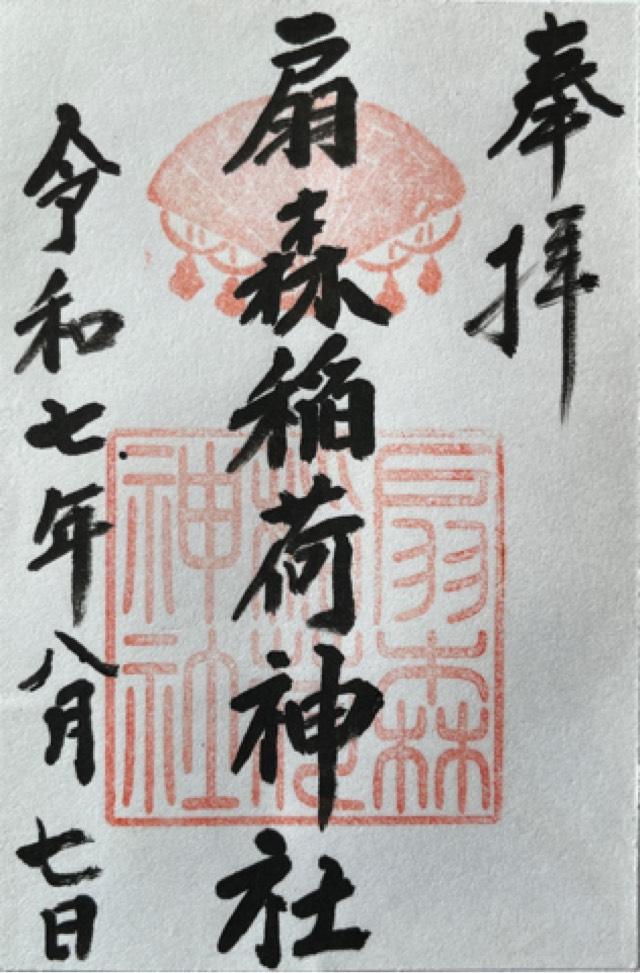 奉拝
扇森稲荷神社
扇森
稲荷
神社
令和七年八月七日